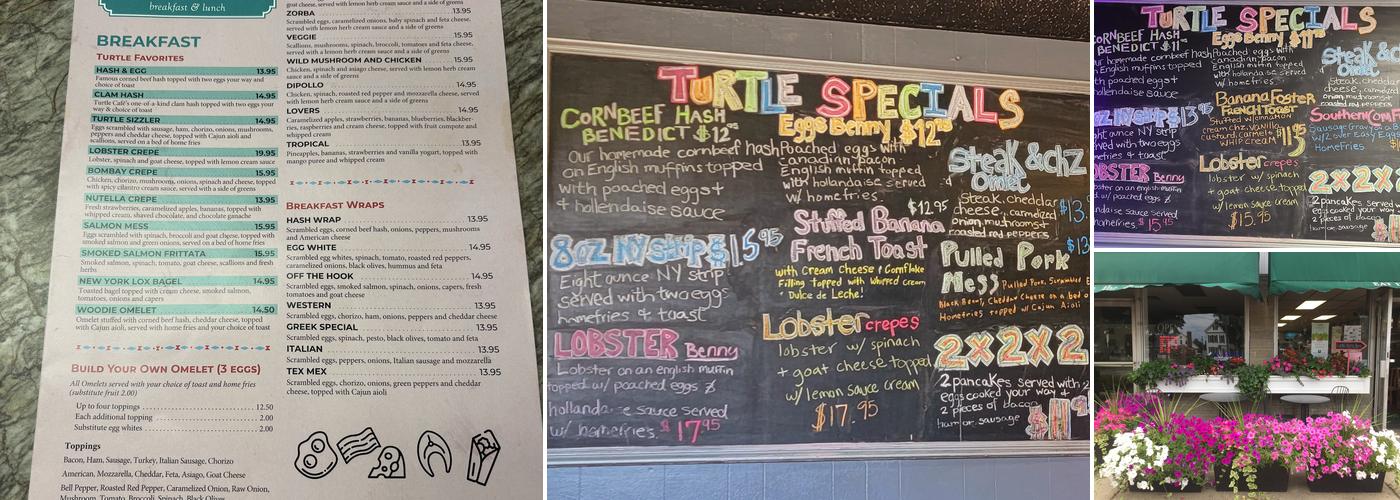 breakfast & lunch
BREAKFAST
TURTLE FAVORITES
HASH & EGG 13.95
Famous corned beef hash topped with two eggs your way and
choice of toast
CLAM HASH 14.95
Turtle Café's one-of-a-kind clam hash topped with two eggs your
way & choice of toast
TURTLE SIZZLER 14.95
Eggs scrambled with sausage, ham, chorizo, onions, mushrooms,
peppers and cheddar cheese, topped with Cajun aioli and
scallions, served on a bed of home fries
LOBSTER CREPE 19.95
Lobster, spinach and goat cheese, topped with lemon cream sauce
BOMBAY CREPE 15.95
Chicken, chorizo, mushrooms, onions, spinach and cheese, topped
with spicy cilantro cream sauce, served with a side of greens
NUTELLA CREPE 13.95
Fresh strawberries, caramelized apples, bananas, topped with
whipped cream, shaved chocolate, and chocolate ganache
SALMON MESS 15.95
Eggs scrambled with spinach, broccoli and goat cheese, topped with
smoked salmon and green onions, served on a bed of home fries
SMOKED SALMON FRITTATA 15.95
Smoked salmon, spinach, tomato, goat cheese, scallions and fresh
herbs
NEW YORK LOX BAGEL 14.95
Toasted bagel topped with cream cheese, smoked salmon,
tomatoes, onions and capers
WOODIE OMELET 14.50
Omelet stuffed with corned beef hash, topped with cheddar cheese
with Cajun aioli, served with home fries and your choice of toast
BUILD YOUR OWN OMELET (3 EGGS)
All Omelets served with your choice of toast and home fries
(substitute fruit 2.00)
Up to four toppings 12.50
Each additional topping 2.00
Substitute egg whites 2.00
Toppings
Bacon, Ham, Sausage, Turkey, Italian Sausage, Chorizo
American, Mozzarella, Cheddar, Feta, Asiago, Goat Cheese
Bell Pepper, Roasted Red Pepper, Caramelized Onion, Raw Onion,
Mushroom, Tomato, Broccoli, Spinach, Black Olives
cheese, served with lemon herb cream sauce and a side of greens
ZORBA 13.95
Scrambled eggs, caramelized onions, baby spinach and feta cheese,
served with lemon herb cream sauce and a side of greens
VEGGIE 15.95
Scallions, mushrooms, spinach, broccoli, tomatoes and feta cheese,
served with a lemon herb cream sauce and a side of greens
WILD MUSHROOM AND CHICKEN 15.95
Chicken, spinach and asiago cheese, served with lemon herb cream
sauce and a side of greens
DIPOLLO 14.95
Chicken, spinach, roasted red pepper and mozzarella cheese, served
with lemon herb cream sauce and a side of greens
LOVERS 14.95
Caramelized apples, strawberries, bananas, blueberries, blackber-
ries, raspberries and cream cheese, topped with fruit compote and
whipped cream
TROPICAL 13.95
Pineapples, bananas, strawberries and vanilla yogurt, topped with
mango puree and whipped cream
BREAKFAST WRAPS
HASH WRAP 13.95
Scrambled eggs, corned beef hash, onions, peppers, mushrooms
and American cheese
EGG WHITE 14.95
Scrambled egg whites, spinach, tomato, roasted red peppers,
caramelized onions, black olives, hummus and feta
OFF THE HOOK 14.95
Scrambled eggs, smoked salmon, spinach, onions, capers, fresh
tomatoes and goat cheese
WESTERN 13.95
Scrambled eggs, chorizo, ham, onions, peppers and cheddar cheese
GREEK SPECIAL 13.95
Scrambled eggs, spinach, pesto, black olives, tomato and feta
ITALIAN 13.95
Scrambled eggs, peppers, onions, Italian sausage and mozzarella
TEX MEX 13.95
Scrambled eggs, chorizo, onions, green peppers and cheddar
cheese, topped with Cajun aioli
TURTLE SPECIALS
CORNBEEF HASH
BENEDICT $12
Our homemade cornbeef hash
on English muffins topped
with poached eggs +
+ hollendaise sauce
8oz NY strip $15.95
Eight ounce NY strip
served with two eggs
homefries + toast
LOBSTER Benny
Lobster on an english muffin
topped w/ poached eggs &
hollandaise sauce served
w/ homefries. $17.95
Eggs Benny $12
Poached eggs with
canadian bacon
English muffin topped
with hollandaise served
w/ homefries.
Stuffed Banana $12.95
French Toast
with Cream Cheese + Cornflake
Filling topped with Whipped Cream
+ Dulce de Leche!
Lobster crepes
lobster w/ spinach
+ goat cheese topped
w/ lemon sauce cream
$17.95
Steak & chz
Omlet
Steak, cheddar $13.
cheese, carmelized
onion, mushrooms +
roasted red peppers
Pulled Pork $13
Mess Pulled Pork, Scrambled
Black Beans, Cheddar Cheese on a bed o
Homefries topped w/ Cajun Aioli
2x2x2
2 pancakes served with 2
eggs cooked your way +
2 pieces of bacon,
ham or sausage
TURTLE SPECIALS
CORNBEEF HASH
BENEDICT $11
homemade cornbeef hash
on English muffins topped
with poached eggs +
hollendaise sauce
NY strip $13.95
ounce NY strip
served with two eggs
homefries + toast
LOBSTER Benny
homefries. $15.95
Eggs Benny $11
Poached eggs with
canadian bacon
English muffin topped
with hollandaise served
w/ homefries.
Banana Foster
FRENCH TOAST
Lobster crepes
lobster w/ spinach
+ goat cheese topped
w/ lemon sauce cream
$15.95
Steak &
Omlet
Steak, chedda
cheese, carmelized
onion, mushrooms +
roasted red peppers
Southern Com
Homefries
2x2x2
2 pancakes served w
eggs cooked your way
2 pieces of bacon
ham or sausage